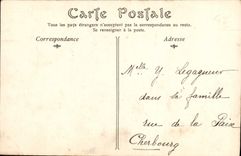 Carte Postale
Tous les pays étrangers n'acceptent pas la correspondance au recto.
Se renseigner à la poste.
Correspondance
Adresse
Melle Y. Legagneur
dans sa famille
rue de la Paix
Cherbourg